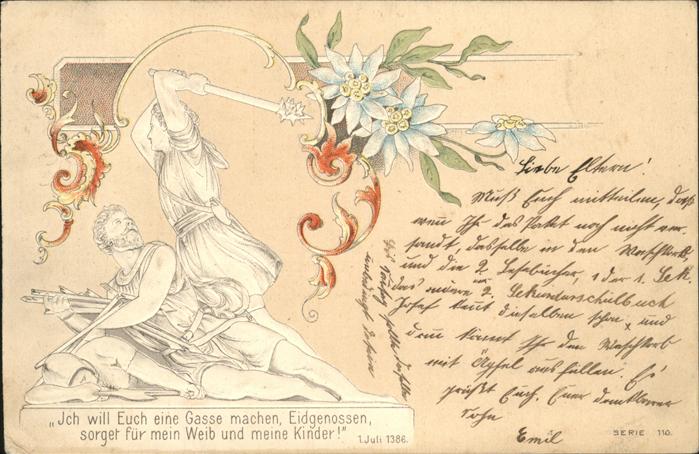 Liebe Eltern!
Muß Euch mitteilen, daß
wenn Ihr das Paket noch nicht ver-
sandt, dasselbe in den Waschkorb
und die 2 Lesebücher, 1 der 1. Sek.
das andere 2. Sekundarschulbuch
Josef kennt dieselben schon, und
dann könnt Ihr den Waschkorb
mit Äpfel ausfüllen. Es
grüßt Euch, Euer dankbarer
Sohn
Emil
„Ich will Euch eine Gasse machen, Eidgenossen,
sorget für mein Weib und meine Kinder!"
1. Juli 1386.
SERIE 110.